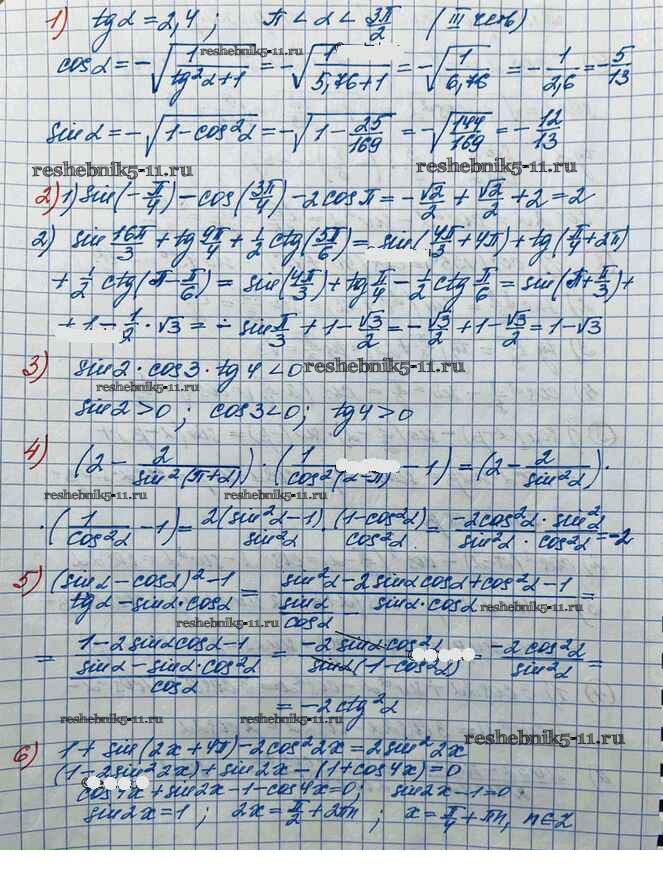 1) tgα = 2,4 ; π < α < 3π/2 (III четв)
cosα = -√(1/(tg²α+1)) = -√(1/(5,76+1)) = -√(1/6,76) = -1/2,6 = -5/13
reshebnik5-11.ru
sinα = -√(1-cos²α) = -√(1-25/169) = -√(144/169) = -12/13
reshebnik5-11.ru reshebnik5-11.ru
2) 1) sin(-π/4) - cos(3π/4) - 2cosπ = -√2/2 + √2/2 + 2 = 2
2) sin 16π/3 + tg 9π/4 + 1/2 ctg(5π/6) = sin(4π/3 + 4π) + tg(π/4 + 2π)
+ 1/2 ctg(π - π/6) = sin(4π/3) + tg π/4 - 1/2 ctg π/6 = sin(π + π/3) +
+ 1 - 1/2 · √3 = - sin π/3 + 1 - √3/2 = -√3/2 + 1 - √3/2 = 1 - √3
3) sin2 · cos3 · tg4 < 0 reshebnik5-11.ru
reshebnik5-11.ru
sin2 > 0 ; cos3 < 0 ; tg4 > 0
reshebnik5-11.ru
4) (2 - 2/sin²(π+α)) · (1/cos²(α-π) - 1) = (2 - 2/sin²α) ·
reshebnik5-11.ru reshebnik5-11.ru
· (1/cos²α - 1) = 2(sin²α-1)/sin²α · (1-cos²α)/cos²α = -2cos²α · sin²α/sin²α · cos²α = -2
5) (sinα - cosα)² - 1/tgα - sinα·cosα = sin²α - 2sinαcosα + cos²α - 1/sinα/cosα - sinα·cosα =
reshebnik5-11.ru
= 1 - 2sinαcosα - 1/sinα - sinα·cos²α/cosα = -2sinαcos²α/sinα(1-cos²α) = -2cos²α/sin²α =
= -2ctg²α
reshebnik5-11.ru reshebnik5-11.ru
reshebnik5-11.ru
6) 1 + sin(2x+4π) - 2cos²2x = 2sin²2x
(1 - 2sin²2x) + sin2x - (1 + cos4x) = 0
cos4x + sin2x - 1 - cos4x = 0 ; sin2x - 1 = 0
sin2x = 1 ; 2x = π/2 + 2πn ; x = π/4 + πn, n∈Z